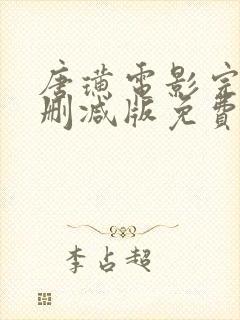 唐璜電影完
刪減版免費
李占超